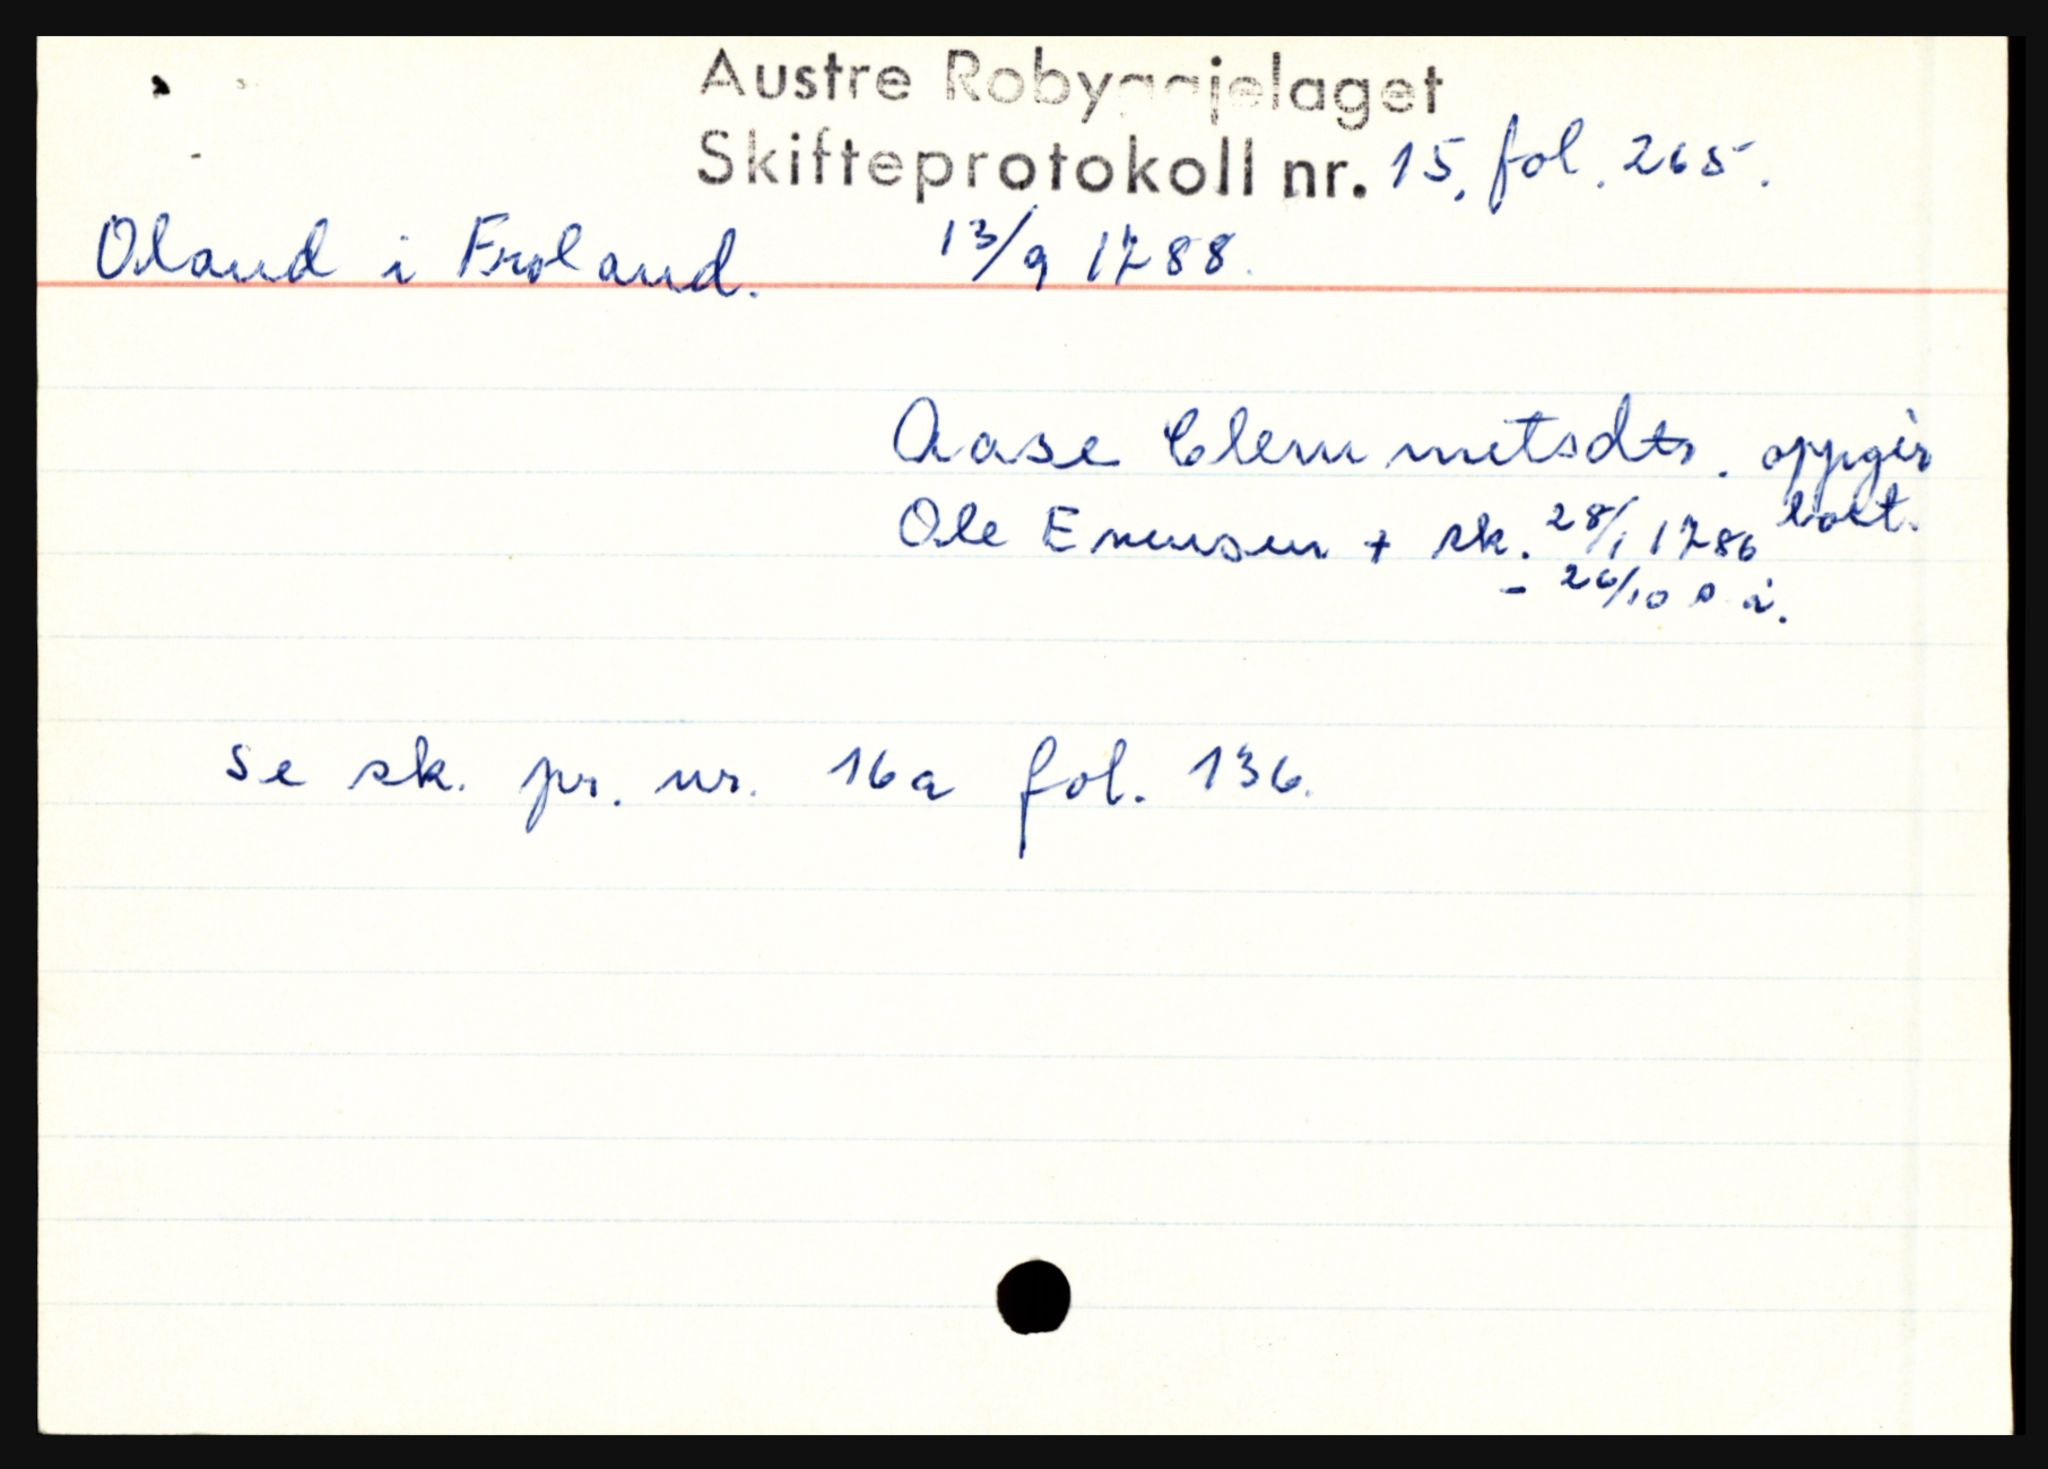 Austre Robyggjelaget
Skifteprotokoll nr. 15, fol. 265.
Oland i Froland. 13/9 1788.
Aase Clemmetsdtr. oppgir
Ole Enersen + sk. 28/1 1786 boet.
- 26/10 s. å.
se sk. pr. nr. 16a fol. 136.